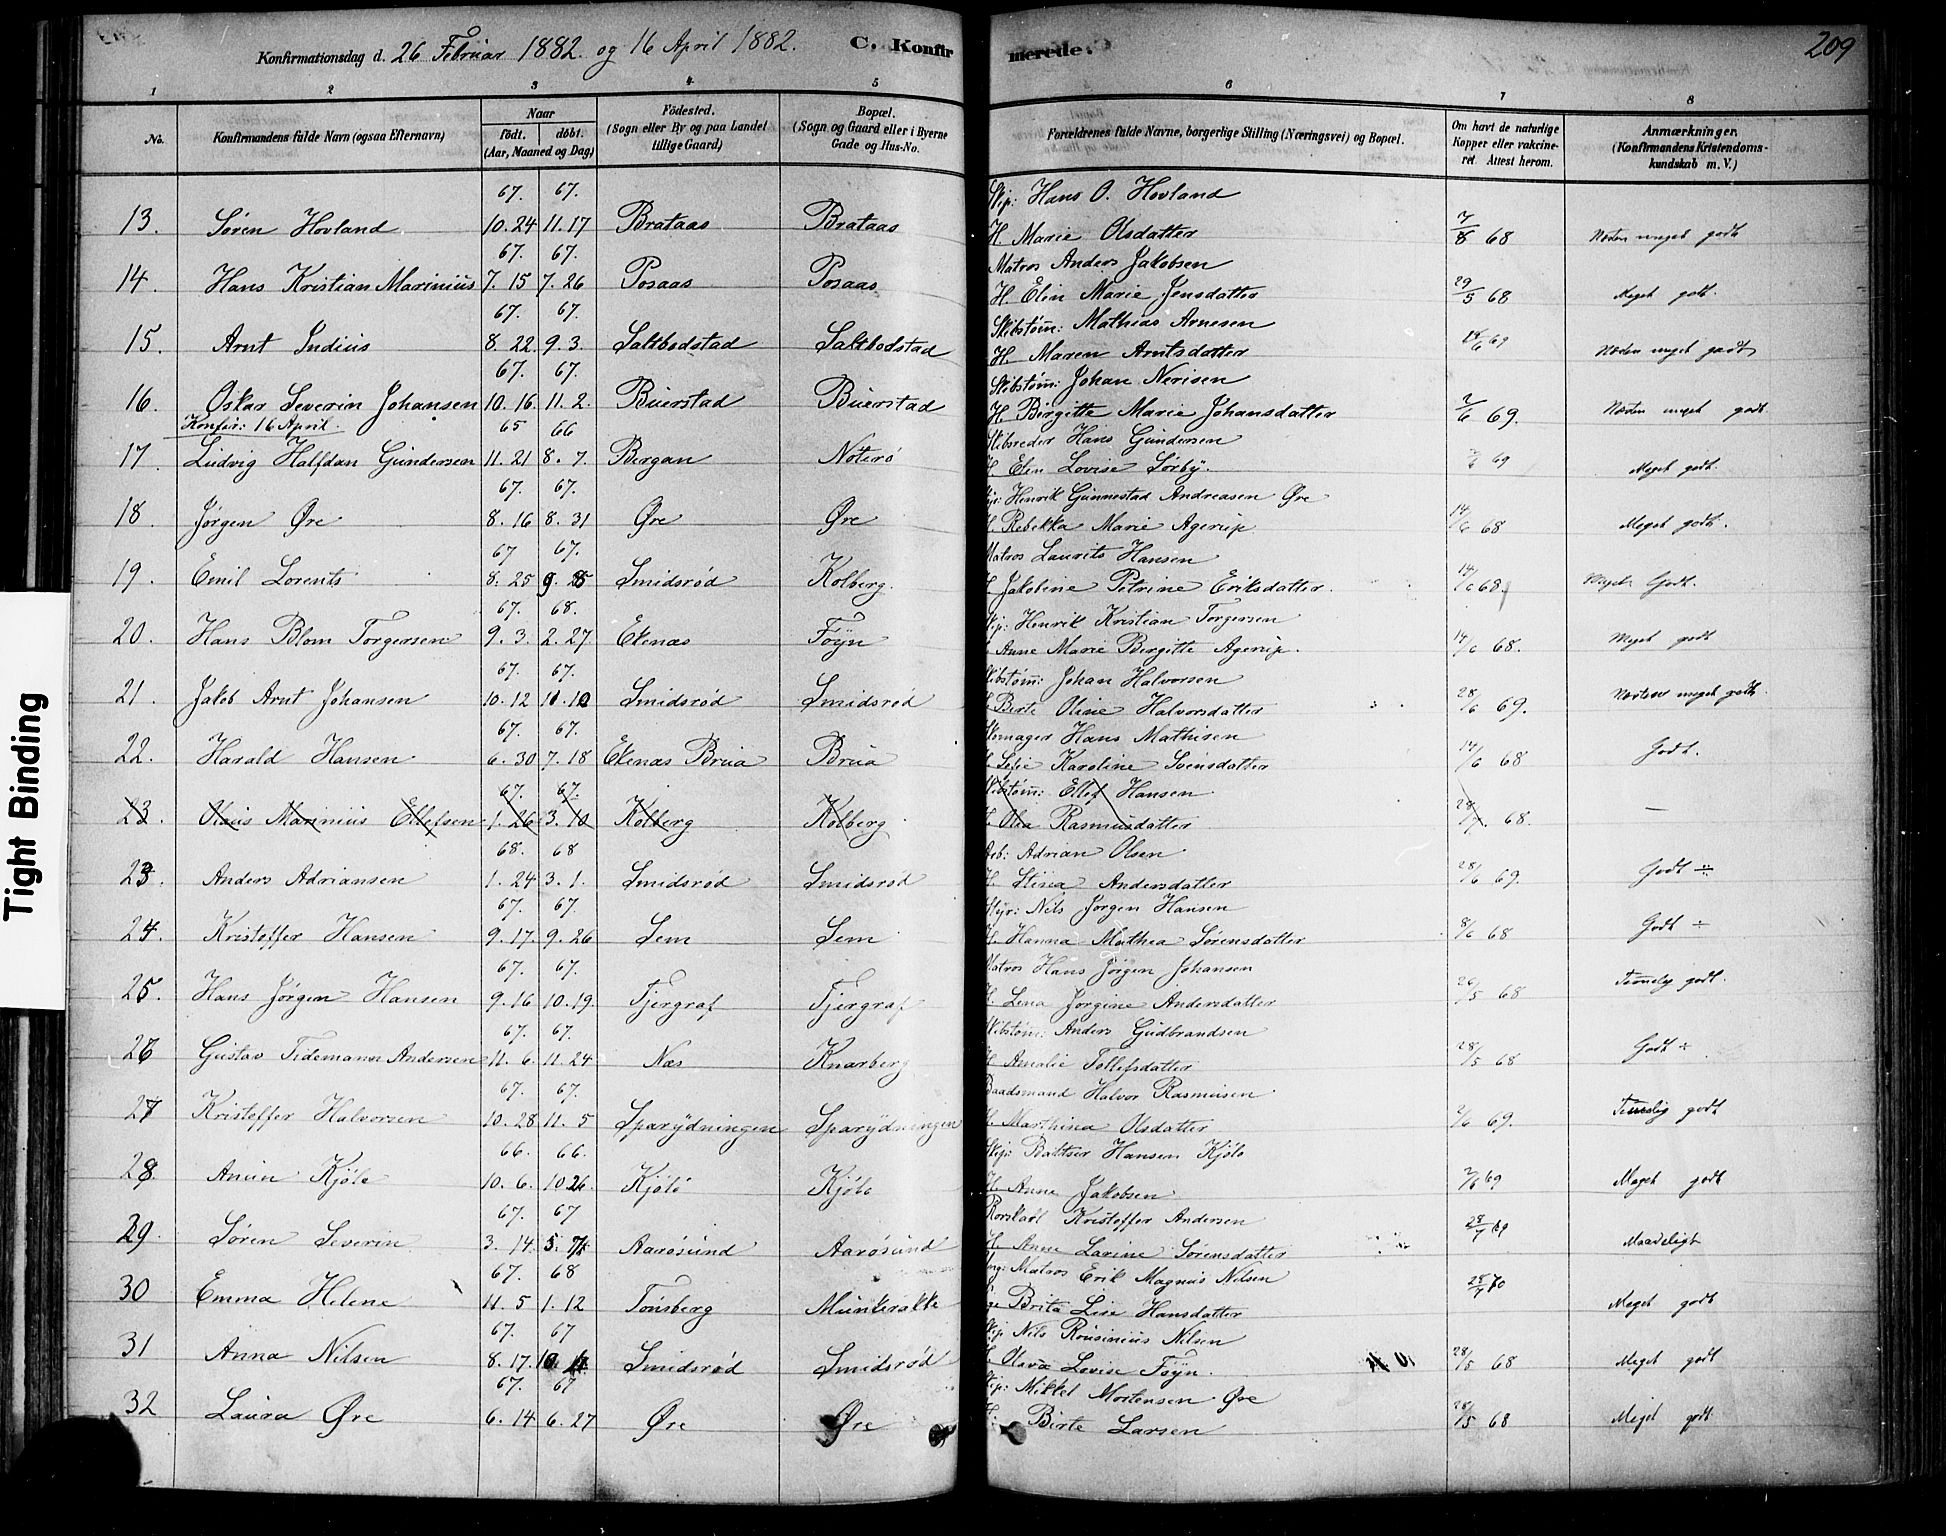 Konfirmationsdag d. 26 Februar 1882. og 16 April 1882. C. Konfirmerede. 209
1 2 3 4 5 6 7 8
No. Konfirmandens fulde Navn (ogsaa Efternavn) Naar födt. döbt. (Aar, Maaned og Dag) Födested. (Sogn eller By og paa Landet tillige Gaard) Bopæl. (Sogn og Gaard eller i Byerne Gade og Hus-No. Forældrenes fulde Navne, borgerlige Stilling (Næringsvei) og Bopæl. Om havt de naturlige Kopper eller vakcineret Attest herom. Anmærkninger. (Konfirmandens Kristendomskundskab m. V.)
67. 67. Skip: Hans O. Hovland
13. Søren Hovland 10. 24 11. 17 Brataas Brataas H. Marie Olsdatter 7/8 68 Næsten meget godt
67. 67. Matros Anders Jakobsen
14. Hans Kristian Marinius 7. 15 7. 26 Posaas Posaas H. Elin Marie Jensdatter 29/5 68 Meget godt.
67. 67. Skibstøm: Mathias Arnesen
15. Arnt Indius 8. 22. 9. 3. Saltbodstad Saltbodstad H. Maren Arntsdatter 69 Næsten meget godt
67. 67. Skibstøm: Johan Nerisen
16. Oskar Severin Johansen 10. 16. 11. 2. Buerstad Buerstad H. Birgitte Marie Johansdatter 2/6 69. Næsten meget godt.
Konfir: 16 April. 65 66 Skibsreder Hans Gundersen
17. Ludvig Halfdan Gundersen 11. 21 8. 7. Bergan Nøterø H. Elen Lovise Sørby. 69 Meget godt.
67. 67. Henrik Gunnestad Andreasen Øre
18. Jørgen Øre 8. 16 8. 31 Øre Øre H. Rebekka Marie Agerup 14/6 68 Meget godt.
67 67. Matros Laurits Hansen
19. Emil Lorents 8. 25 Smidsrød Kolberg. H. Jakobine Petrine Eriksdatter. 14/6 68. Meget Godt.
67. 68. Skip: Henrik Kristian Torgersen
20. Hans Blom Torgersen 9. 3. 2. 27. Ekenæs Føyn H. Anne Marie Birgitte Agerup. 14/6 68. Meget godt
67. 67. Skibstøm: Johan Halvorsen
21. Jakob Arnt Johansen 10. 12 Smidsrød Smidsrød H. Berte Oline Halvorsdatter 28/6 69. Næsten meget godt.
67. 67. Skomager Hans Mathisen
22. Harald Hansen 6. 30 7. 18 Ekenæs Brua Brua Karoline Svensdatter 14/6 68 Godt.
67. 67. Skibstøm: Ellef Hansen
23. Olaus Marinius Ellefsen 1. 26 3. 10 Kolberg Kolberg H. Olea Rasmusdatter 28/7. 68. —
68. 68 Arb: Adrian Olsen
23. Anders Adriansen 1. 24 3. 1. Smidsrød Smidsrød H. Stina Andersdatter 28/6 69. Godt ÷
67. 67. Styr: Nils Jørgen Hansen
24. Kristoffer Hansen 9. 17. 9. 26 Sem Sem H. Hanna Mathea Sørensdatter 8/6 68 Godt ÷
67. 67. Matros Hans Jørgen Johansen
25. Hans Jørgen Hansen 9. 16 10. 19. Tjergraf Tjergraf H. Lena Jørgine Andersdatter 26/5 68 Temelig godt.
67. 67. Skibstøm: Anders Gudbrandsen
26 Gustav Tidemann Andersen 11. 6. 11. 24 Næs Knarberg H. Amalie Tollefsdatter 28/5 68 Godt ÷
67. 67. Baadsmand Halvor Rasmusen
27 Kristoffer Halvorsen 10. 28 11. 5 Sparydningen Sparydningen H. Marthina Olsdatter 2/6 69. Temelig godt
66. 66. Skip: Baltser Hansen Kjølø
28. Anun Kjølø 10. 6. 10 26. Kjølø Kjølø H. Anne Jakobsen 69 Meget godt
67. 67 Kristoffer Andersen
29. Søren Severin 3. 14 Aarøsund Aarøsund H. Anne Larine Sørensdatter 28/7 69 Maadeligt
67. 68 Ung: Matros Erik Magnus Nilsen
30 Emma Helene 11. 5 1. 12 Tønsberg Munkerakke Pige Brita Lise Hansdatter 28/7 70 Meget godt
67. 67 Skip Nils Rousinius Nilsen
31 Anna Nilsen 8. 17. Smidsrød Smidsrød H. Olava Lovise Føyn 28/5 68 Meget godt
67. 67 Skip: Mikkel Mortensen Øre
32 Laura Øre 6. 14 6. 27 Øre Øre H. Birte Larsen 28/5 68 Meget godt.
Tight Binding